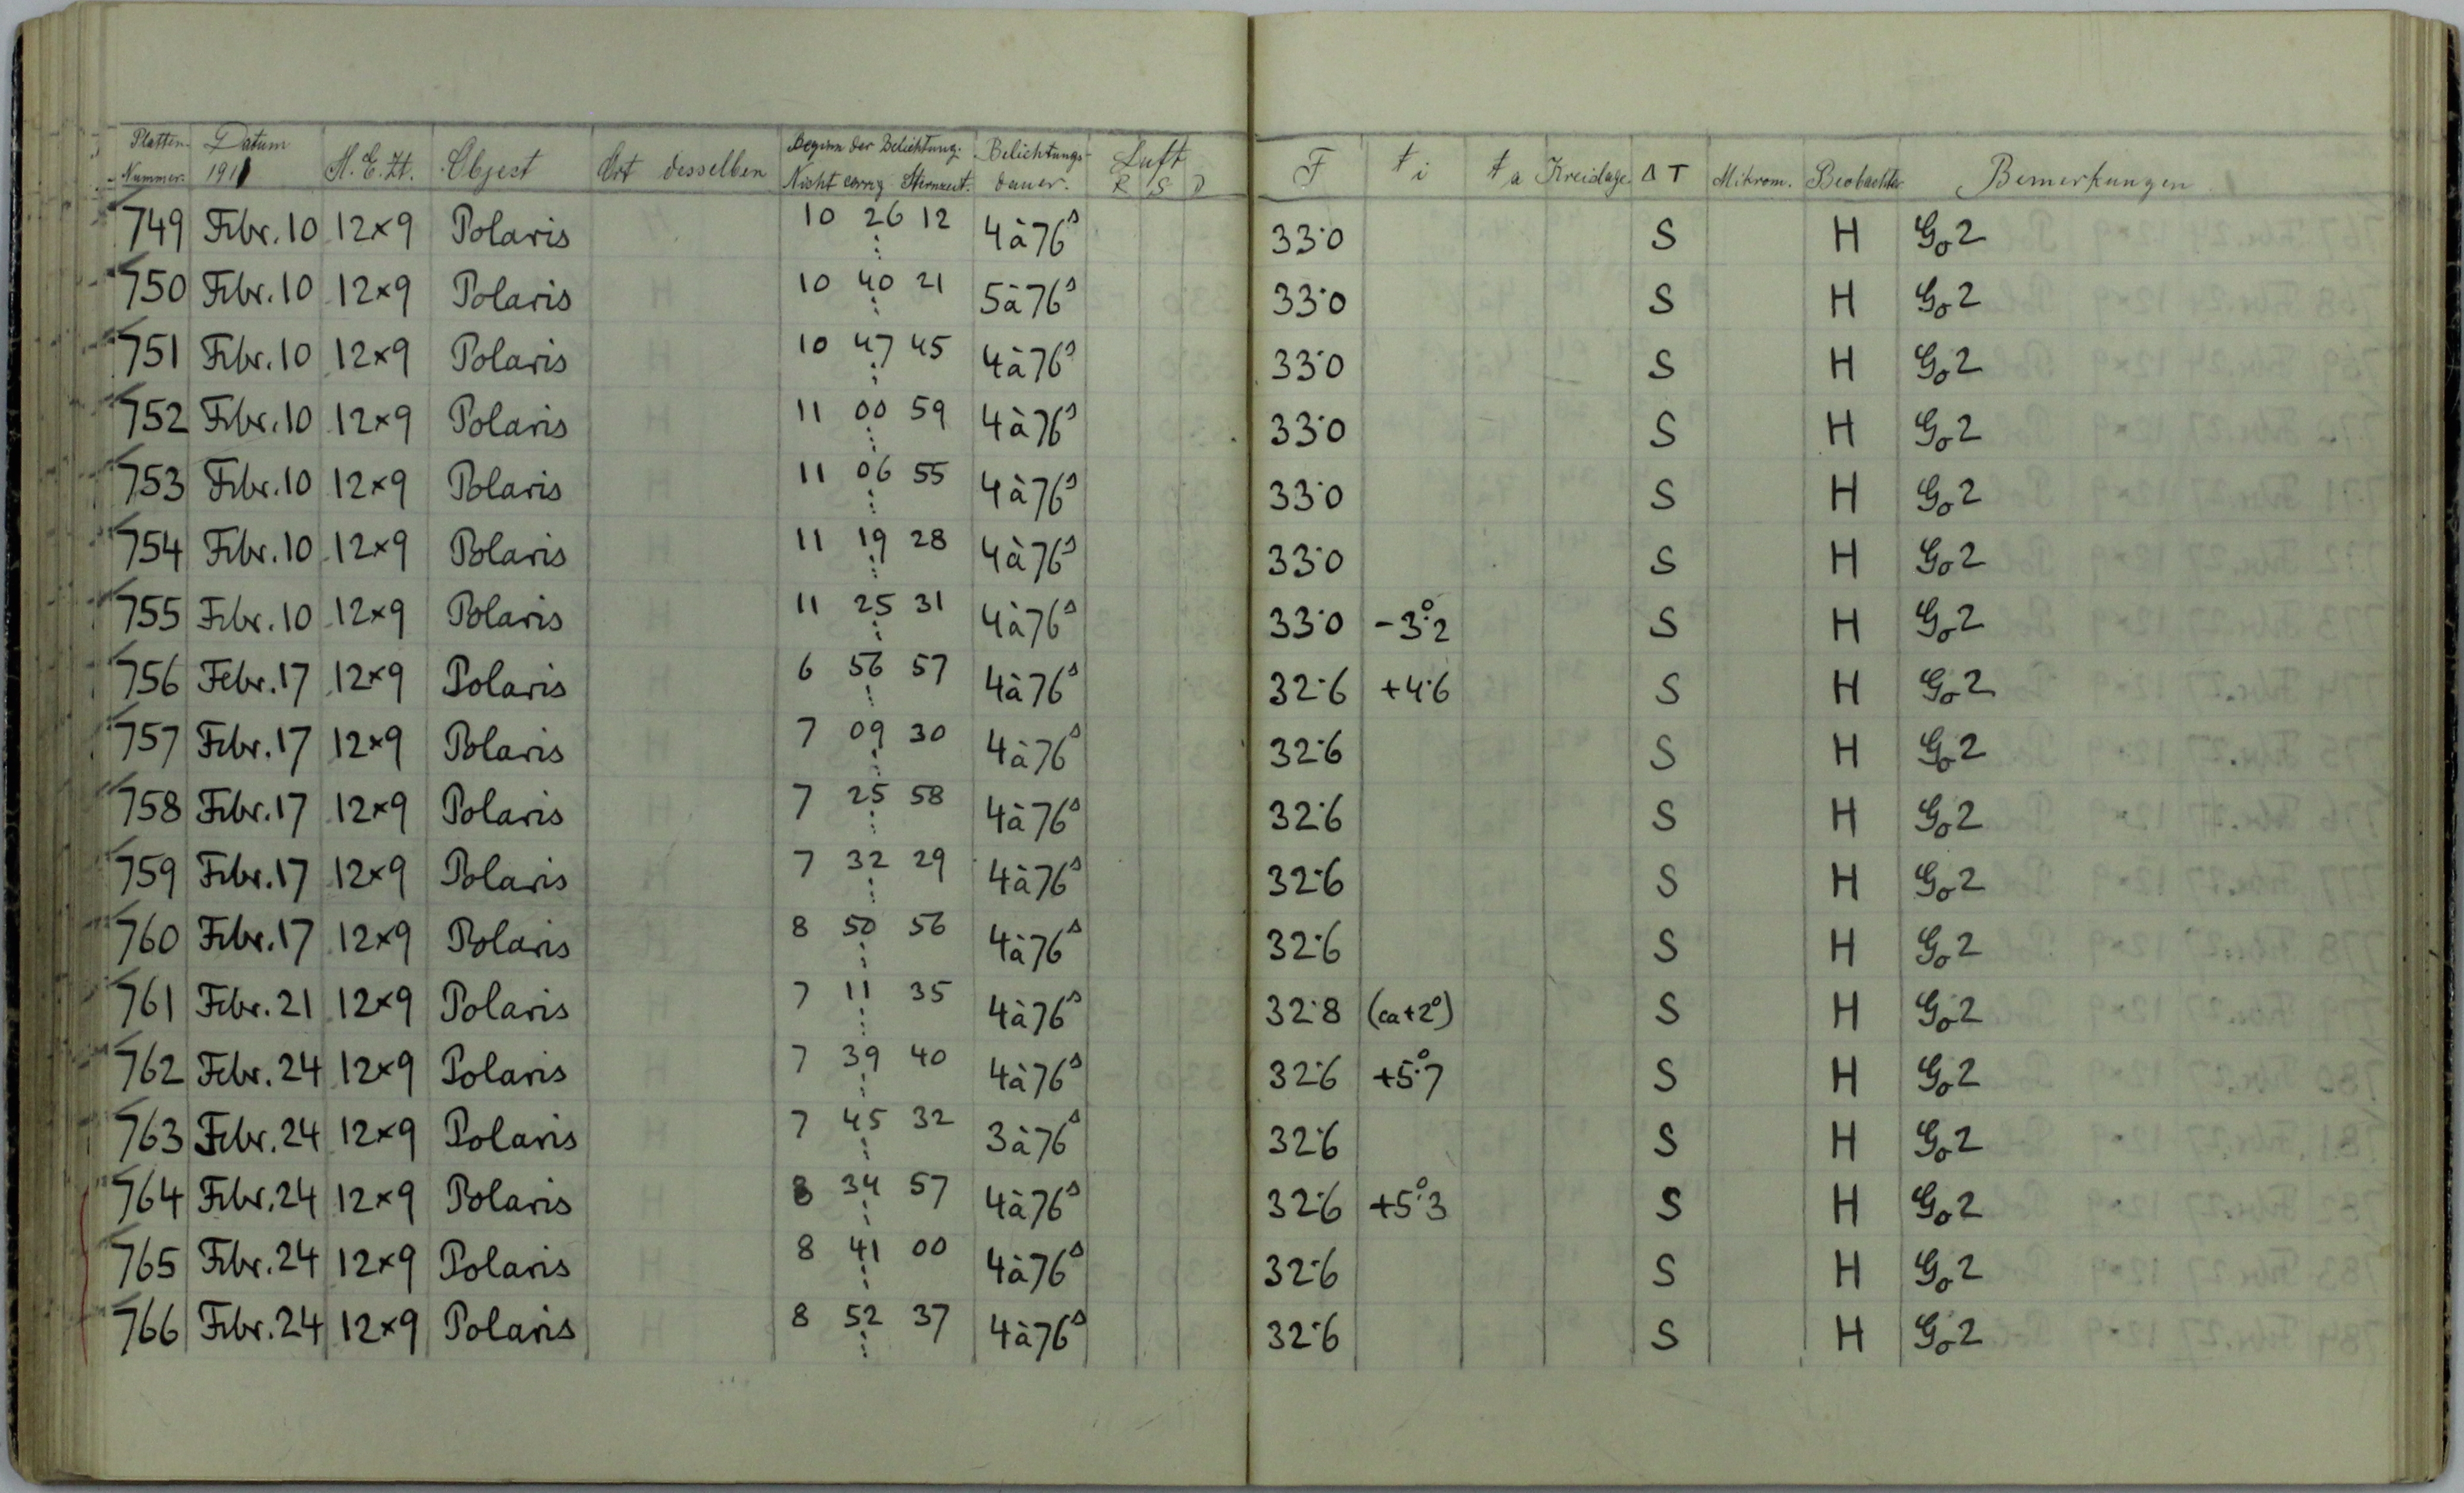 Platten- Nummer. Datum 1911 M.E.Zt. Object Ort desselben Beginn der Belichtung. Nicht corrig. Sternzeit. Belichtungs-dauer. Luft R S D F t i t a Kreislage Δ T Mikrom. Beobachter Bemerkungen
749 Febr. 10 12×9 Polaris 10 26 12 4à76ˢ 33·0 S H Go2
750 Febr. 10 12×9 Polaris 10 40 21 5à76ˢ 33·0 S H Go2
751 Febr. 10 12×9 Polaris 10 47 45 4à76ˢ 33·0 S H Go2
752 Febr. 10 12×9 Polaris 11 00 59 4à76ˢ 33·0 S H Go2
753 Febr. 10 12×9 Polaris 11 06 55 4à76ˢ 33·0 S H Go2
754 Febr. 10 12×9 Polaris 11 19 28 4à76ˢ 33·0 S H Go2
755 Febr. 10 12×9 Polaris 11 25 31 4à76ˢ 33·0 -3°·2 S H Go2
756 Febr. 17 12×9 Polaris 6 56 57 4à76ˢ 32·6 +4·6 S H Go2
757 Febr. 17 12×9 Polaris 7 09 30 4à76ˢ 32·6 S H Go2
758 Febr. 17 12×9 Polaris 7 25 58 4à76ˢ 32·6 S H Go2
759 Febr. 17 12×9 Polaris 7 32 29 4à76ˢ 32·6 S H Go2
760 Febr. 17 12×9 Polaris 8 50 56 4à76ˢ 32·6 S H Go2
761 Febr. 21 12×9 Polaris 7 11 35 4à76ˢ 32·8 (ca+2°) S H Go2
762 Febr. 24 12×9 Polaris 7 39 40 4à76ˢ 32·6 +5°·7 S H Go2
763 Febr. 24 12×9 Polaris 7 45 32 3à76ˢ 32·6 S H Go2
764 Febr. 24 12×9 Polaris 8 34 57 4à76ˢ 32·6 +5°·3 S H Go2
765 Febr. 24 12×9 Polaris 8 41 00 4à76ˢ 32·6 S H Go2
766 Febr. 24 12×9 Polaris 8 52 37 4à76ˢ 32·6 S H Go2